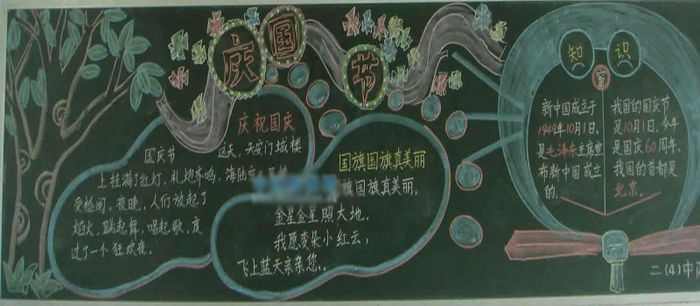 国庆节
庆祝国庆
国庆节
这天,天安门城楼
上挂满了红灯,礼炮齐鸣,
夜晚,人们放起了
焰火,跳起舞,唱起歌,度
过了一个狂欢夜。
国旗国旗真美丽
国旗国旗真美丽,
金星金星照大地。
我愿变朵小红云,
飞上蓝天亲亲您。
知识
新中国成立于
1949年10月1日,
是毛泽东主席宣
布新中国成立
的。
我国的国庆节
是10月1日,今年
是国庆60周年,
我国的首都是
北京。
二(4)中队